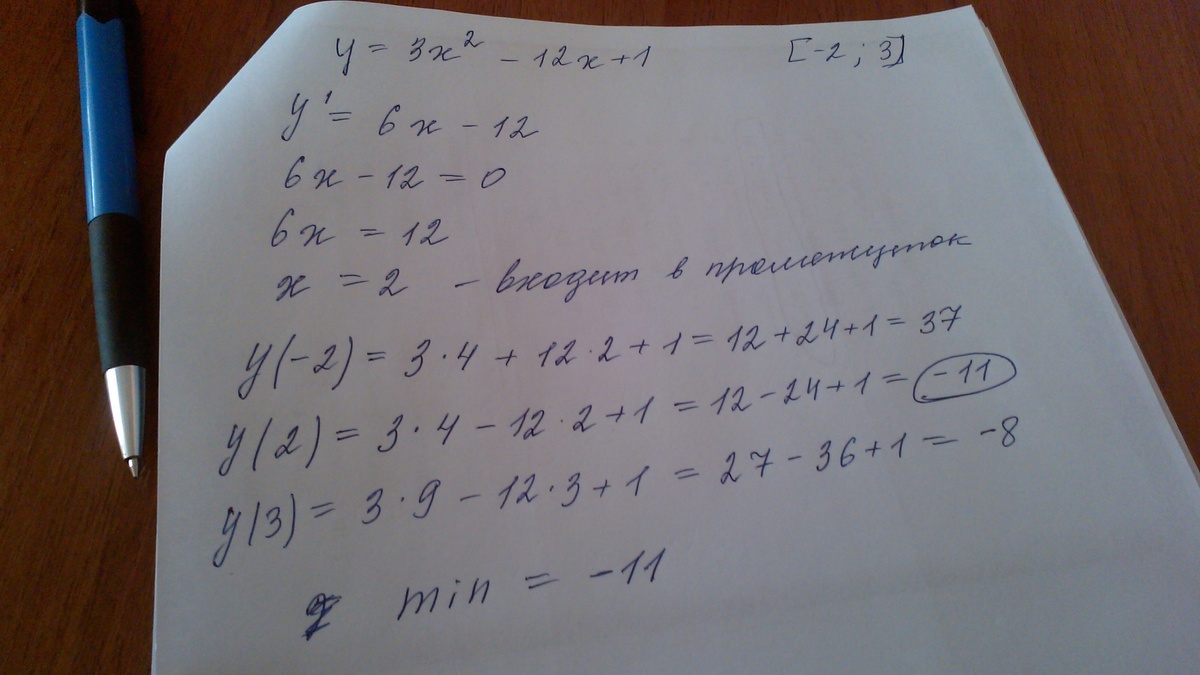 y = 3x² - 12x + 1 [-2 ; 3]
y' = 6x - 12
6x - 12 = 0
6x = 12
x = 2 - входит в промежуток
y(-2) = 3·4 + 12·2 + 1 = 12 + 24 + 1 = 37
y(2) = 3·4 - 12·2 + 1 = 12 - 24 + 1 = -11
y(3) = 3·9 - 12·3 + 1 = 27 - 36 + 1 = -8
min = -11